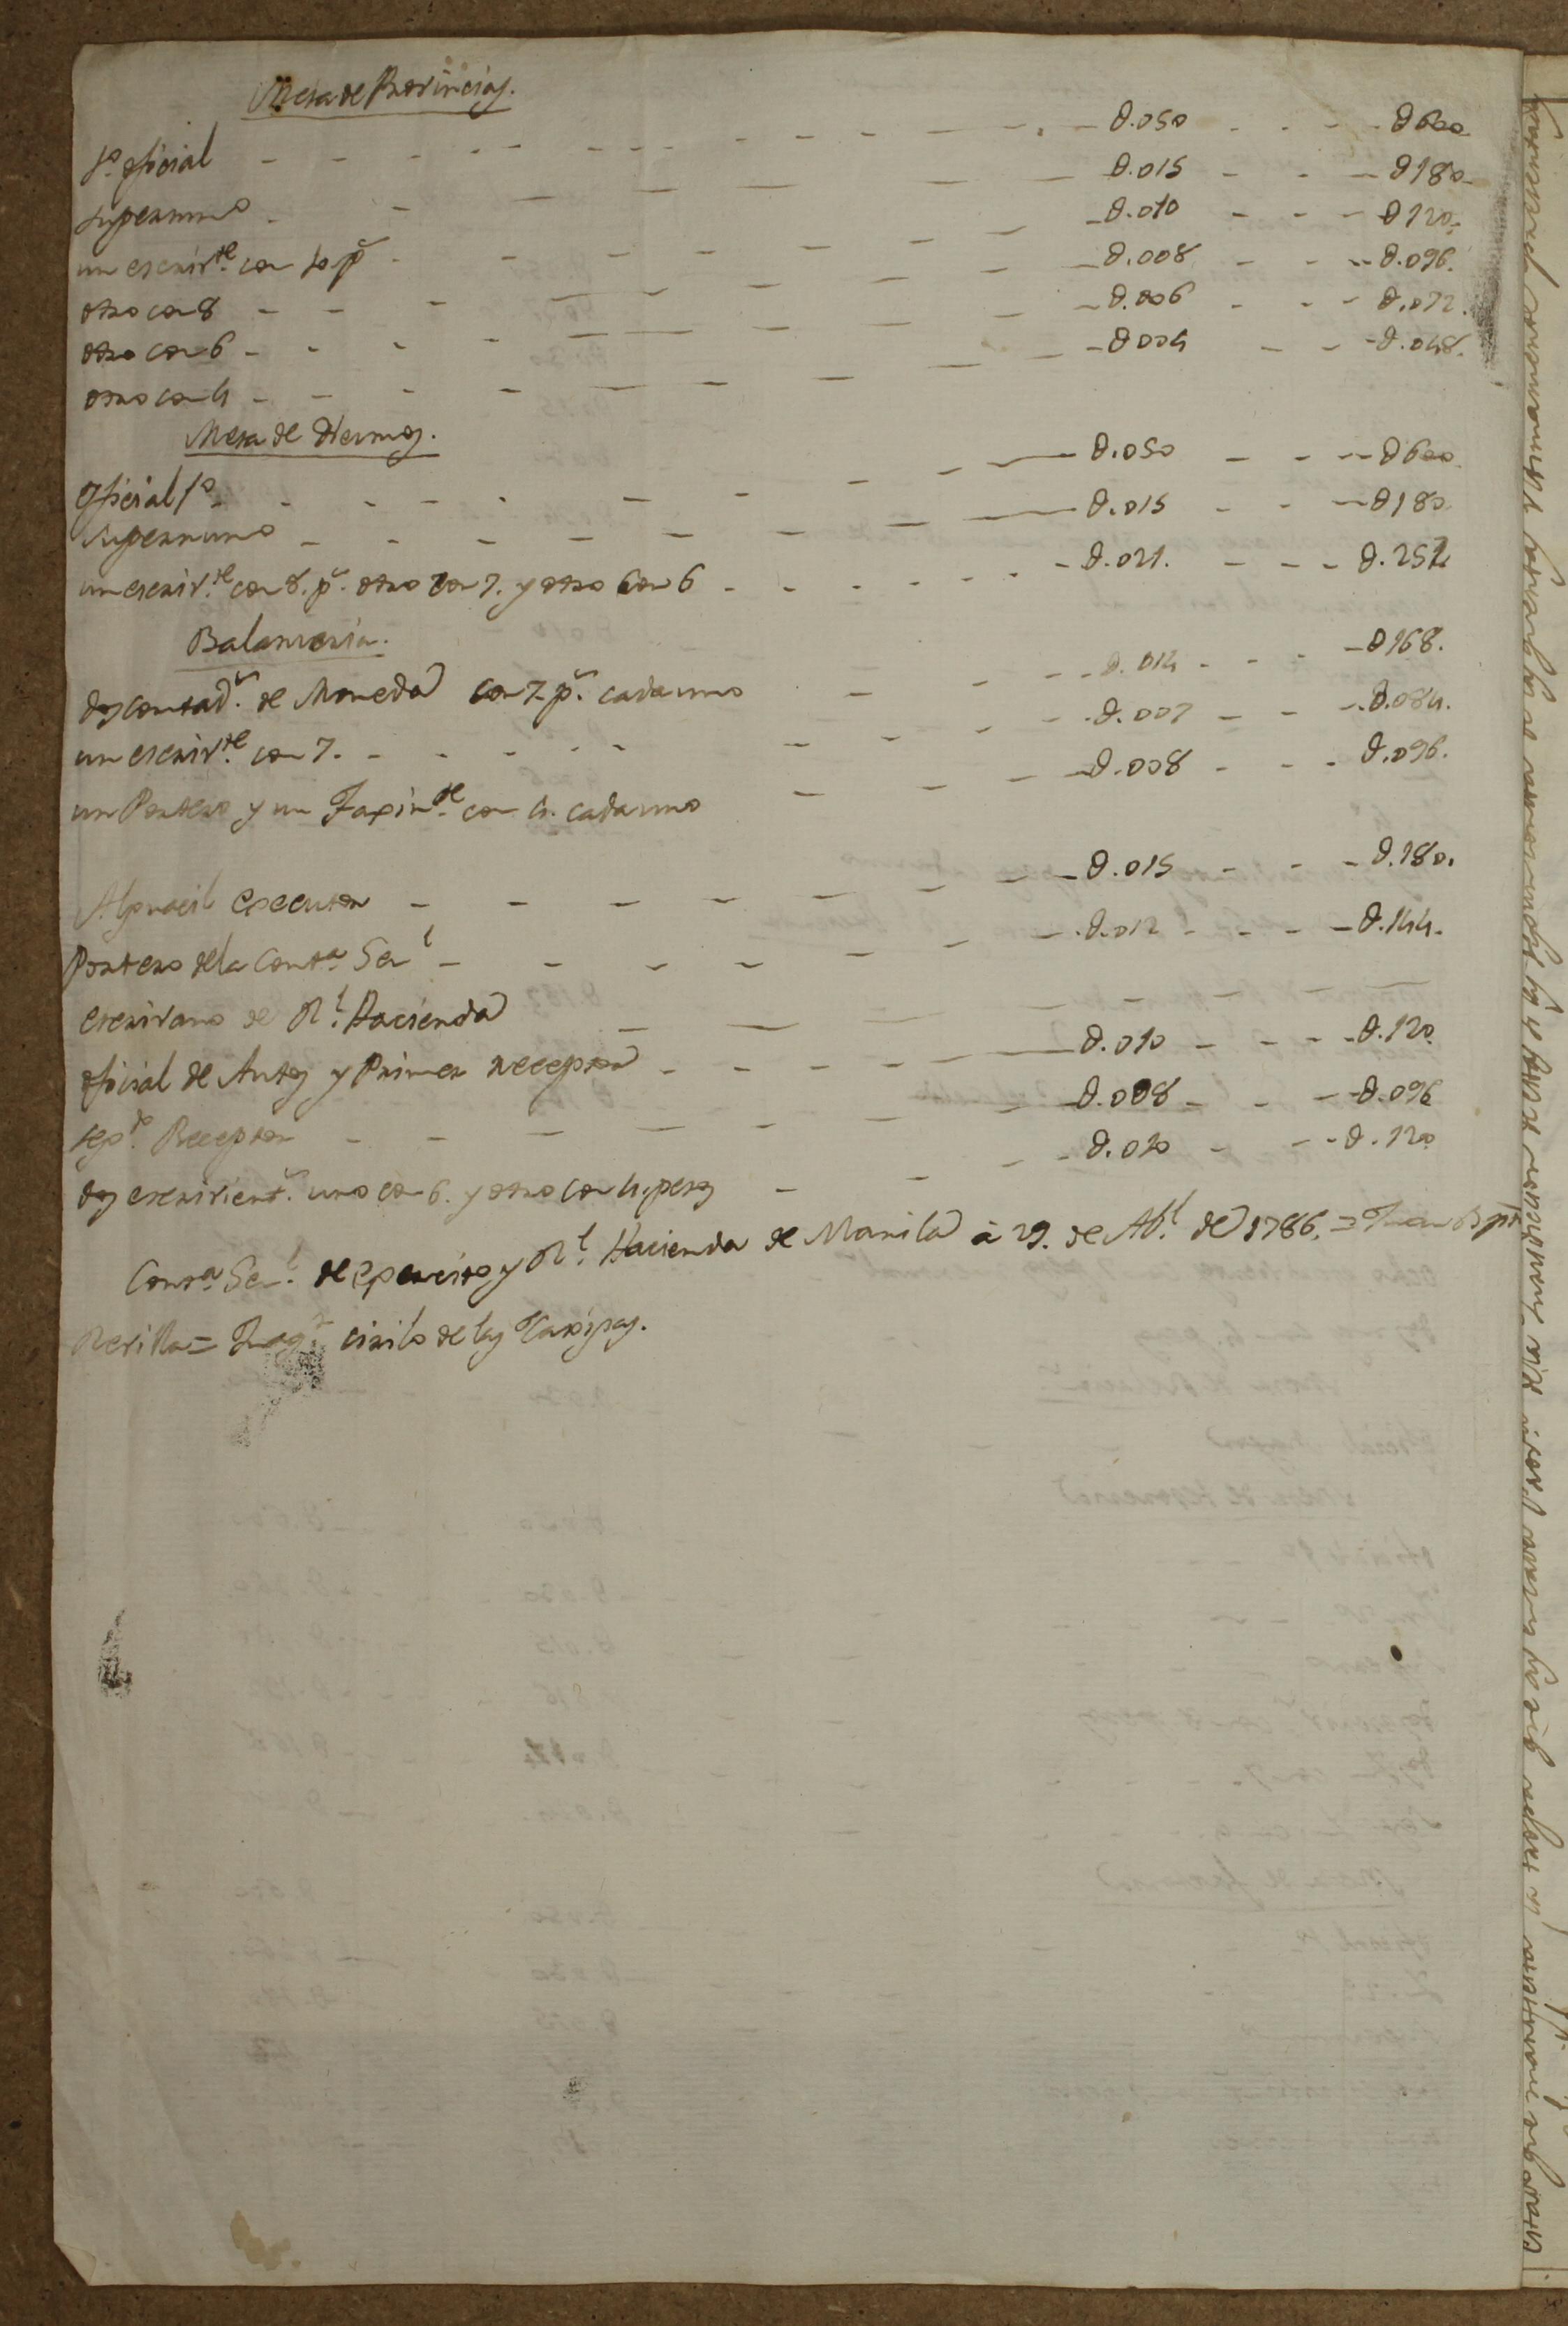 Mesa de Provincias.
1º. oficial - - - - - - - - - - - - - - - - - - - - - - - - - - - - - - - - - - - - - - - - - - - - - - - - - - - - - - - - - - - - - Ð.050 - - - Ð600
supernumº - - - - - - Ð.015 - - - Ð180
un escrivte. con 10. ps. - - - - - - Ð.010 - - - Ð120.
otro con 8 - - - - - - Ð.008 - - - Ð.096.
otro con 6 - - - - - - Ð.006 - - - Ð.072.
otro con 4 - - - - - - Ð004 - - - Ð.048.
Mesa de Diezmos.
Oficial 1º. - - - - - - Ð.050 - - - Ð600
supernumº - - - - - - Ð.015 - - - Ð180
un escrivte. con 8. ps. otro con 7. y otro con 6 - - - - - - Ð.021. - - - Ð.252
Balanzaria.
dos contadrs. de Moneda con 7. ps. cada uno - - - - Ð.014 - - - Ð168.
un escrivte. con 7. - - - - - - Ð.007 - - - Ð.084.
un Portero y un Faginte. con 4. cada uno - - - Ð.008 - - - Ð.096.
Alguacil executor - - - - - - Ð.015 - - - Ð.180.
Portero de la Conta. Genl - - - - - - Ð.012 - - - Ð.144.
escrivano de Rl. Hacienda - - - - - -
oficial de Autos y Primer receptor - - - - - - Ð.010 - - - Ð.120
sego. Receptor - - - - - - Ð.008 - - - Ð.096
dos escrivients. uno con 6. y otro con 4. pesos - - - - Ð.010 - - - Ð.120
Conta. Genl. de Exercito y Rl. Hacienda de Manila à 29. de Abl. de 1786. = Juan Bpta
Revilla = cirilo de las